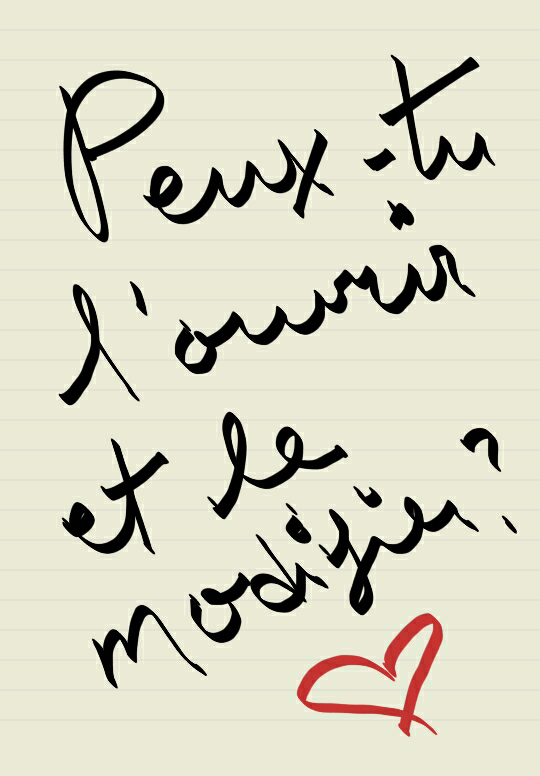 Peux-tu
l'ouvrir
et le
modifier?